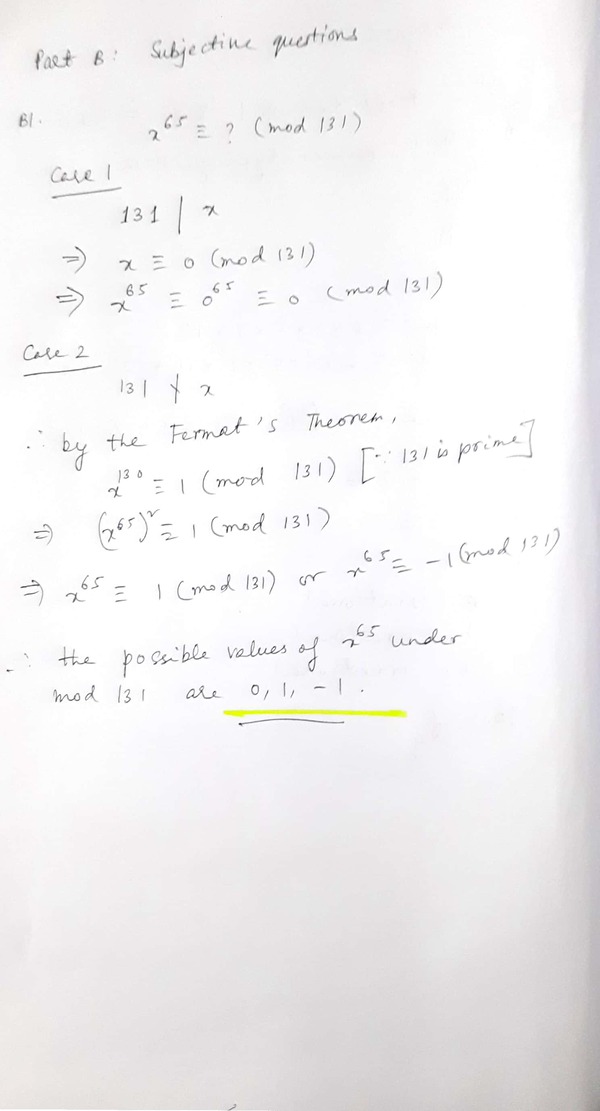 Part B: Subjective questions
B1. x^65 ≡ ? (mod 131)
Case 1
131 | x
⇒ x ≡ 0 (mod 131)
⇒ x^65 ≡ 0^65 ≡ 0 (mod 131)
Case 2
131 ∤ x
∴ by the Fermat's Theorem,
x^130 ≡ 1 (mod 131) [∵ 131 is prime]
⇒ (x^65)^2 ≡ 1 (mod 131)
⇒ x^65 ≡ 1 (mod 131) or x^65 ≡ -1 (mod 131)
∴ the possible values of x^65 under
mod 131 are 0, 1, -1.